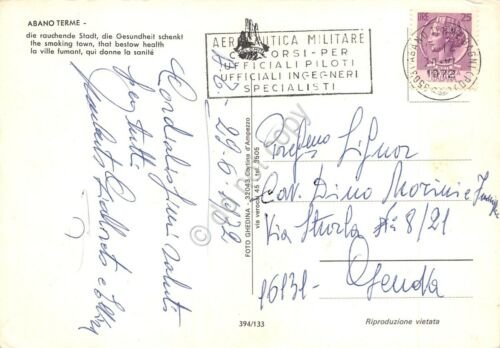 ABANO TERME -
die rauchende Stadt, die Gesundheit schenkt
the smoking town, that bestow health
la ville fumant, qui donne la santé
AERONAUTICA MILITARE
CONCORSI - PER
UFFICIALI PILOTI
UFFICIALI INGEGNERI
SPECIALISTI
25
35031 ABANO
1972
29.6.1972
Cordialissimi saluti
per tutti
FOTO GHEDINA - 32043 Cortina d'Ampezzo
Signor
Cav. Dino
Via Sturla № 8/21
16131 - Genova
394/133
Riproduzione vietata